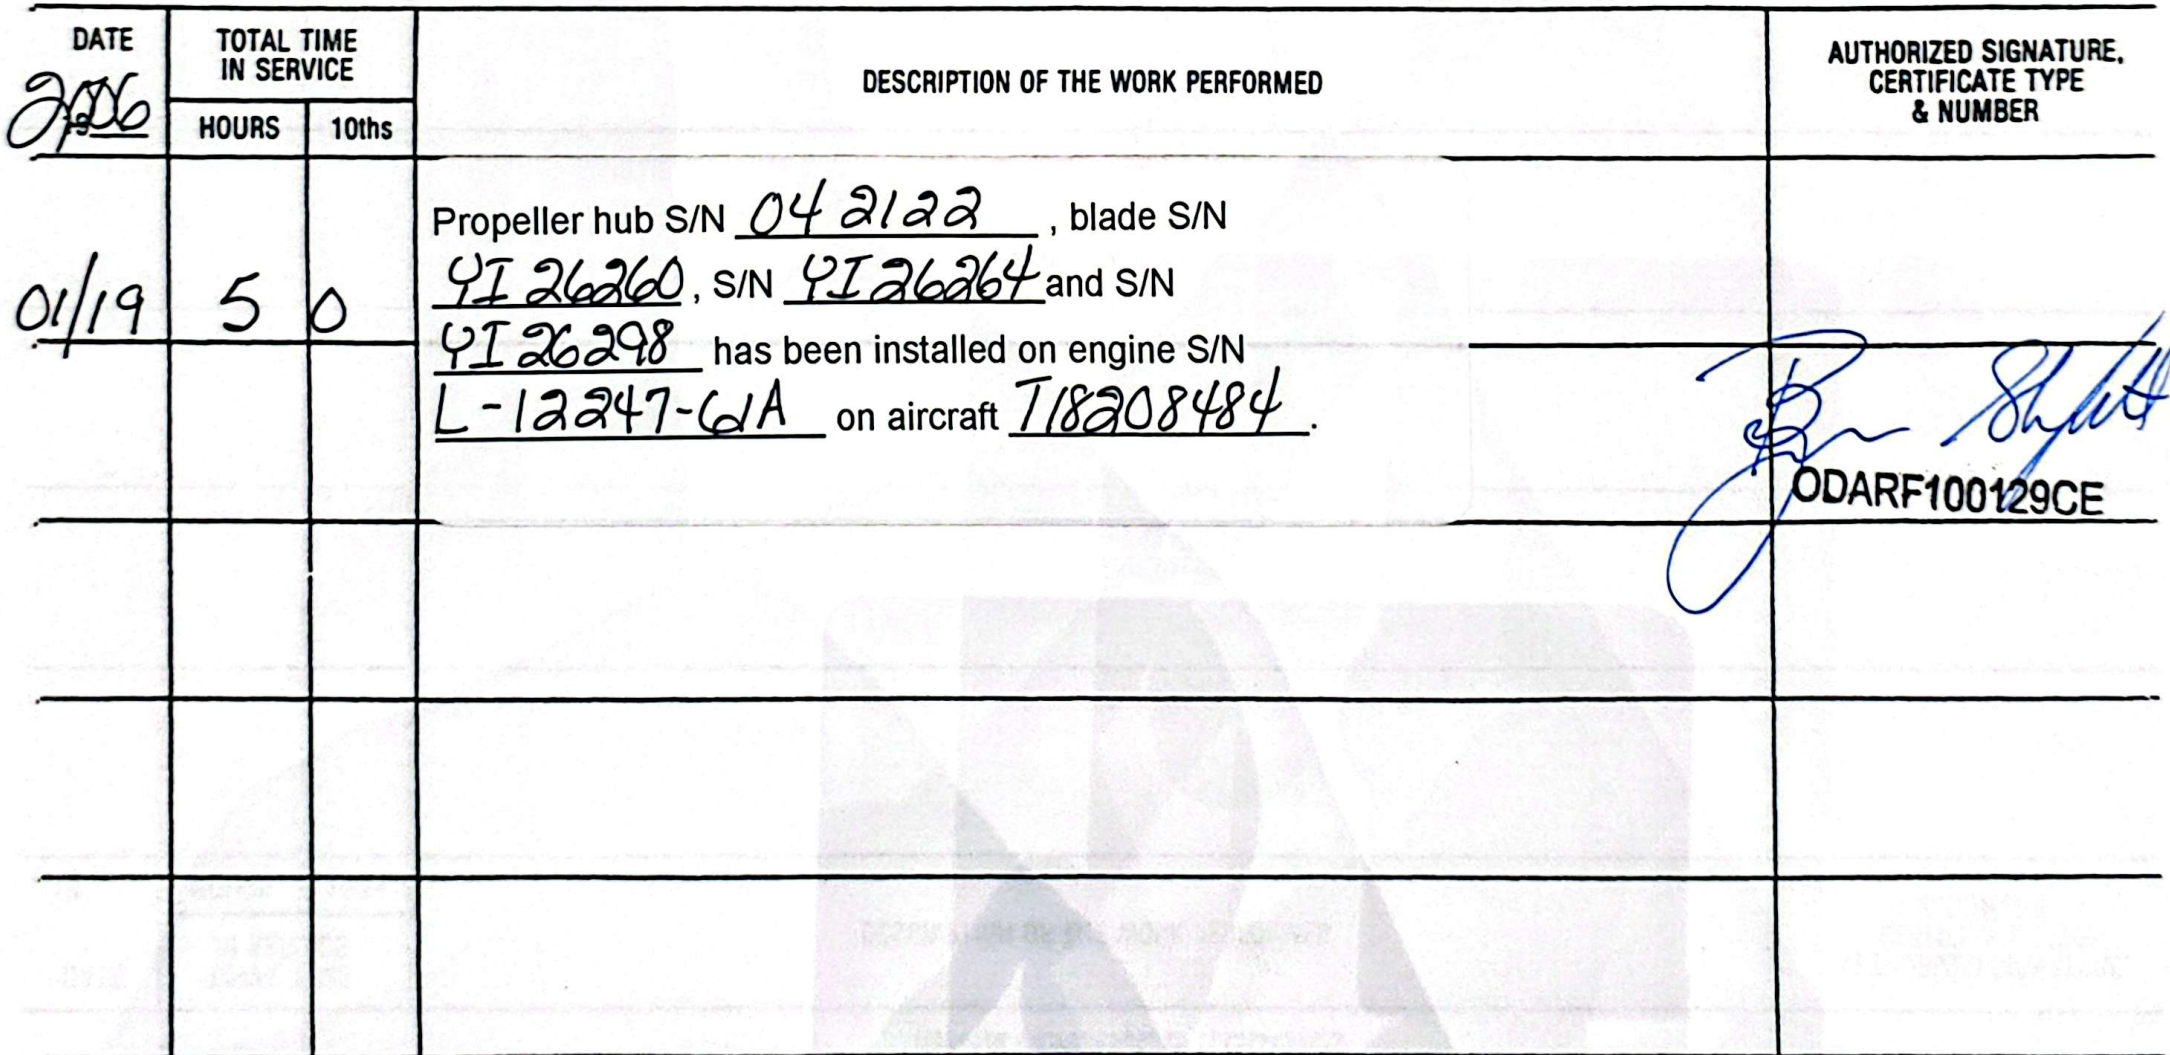 DATE
2026
TOTAL TIME
IN SERVICE
HOURS
10ths
DESCRIPTION OF THE WORK PERFORMED
AUTHORIZED SIGNATURE,
CERTIFICATE TYPE
& NUMBER
01/19
5
0
Propeller hub S/N 042122, blade S/N
YI26260, S/N YI26264 and S/N
YI26298 has been installed on engine S/N
L-12247-61A on aircraft T18208484.
ODARF100129CE